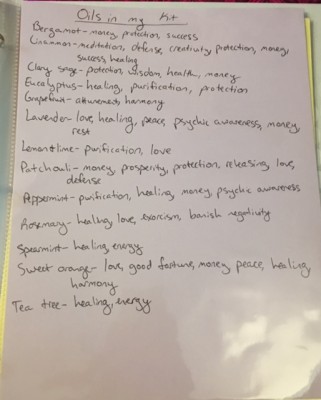 Oils in my Kit
Bergamot- money, protection, success
Cinnamon-meditation, defense, creativity, protection, money,
success, healing
Clary sage- potection, wisdom, health, money
Eucalyptus- healing, purification, protection
Grapefruit- attunement, harmony
Lavender- love, healing, peace, psychic awareness, money,
rest
Lemon+lime- purification, love
Patchouli- money, prosperity, protection, releasing, love,
defense
Peppermint- purification, healing, money, psychic awareness
Rosemary- healing, love, exorcism, banish negativity
Spearmint- healing, energy
Sweet orange- love, good fortune, money, peace, healing,
harmony
Tea tree- healing, energy